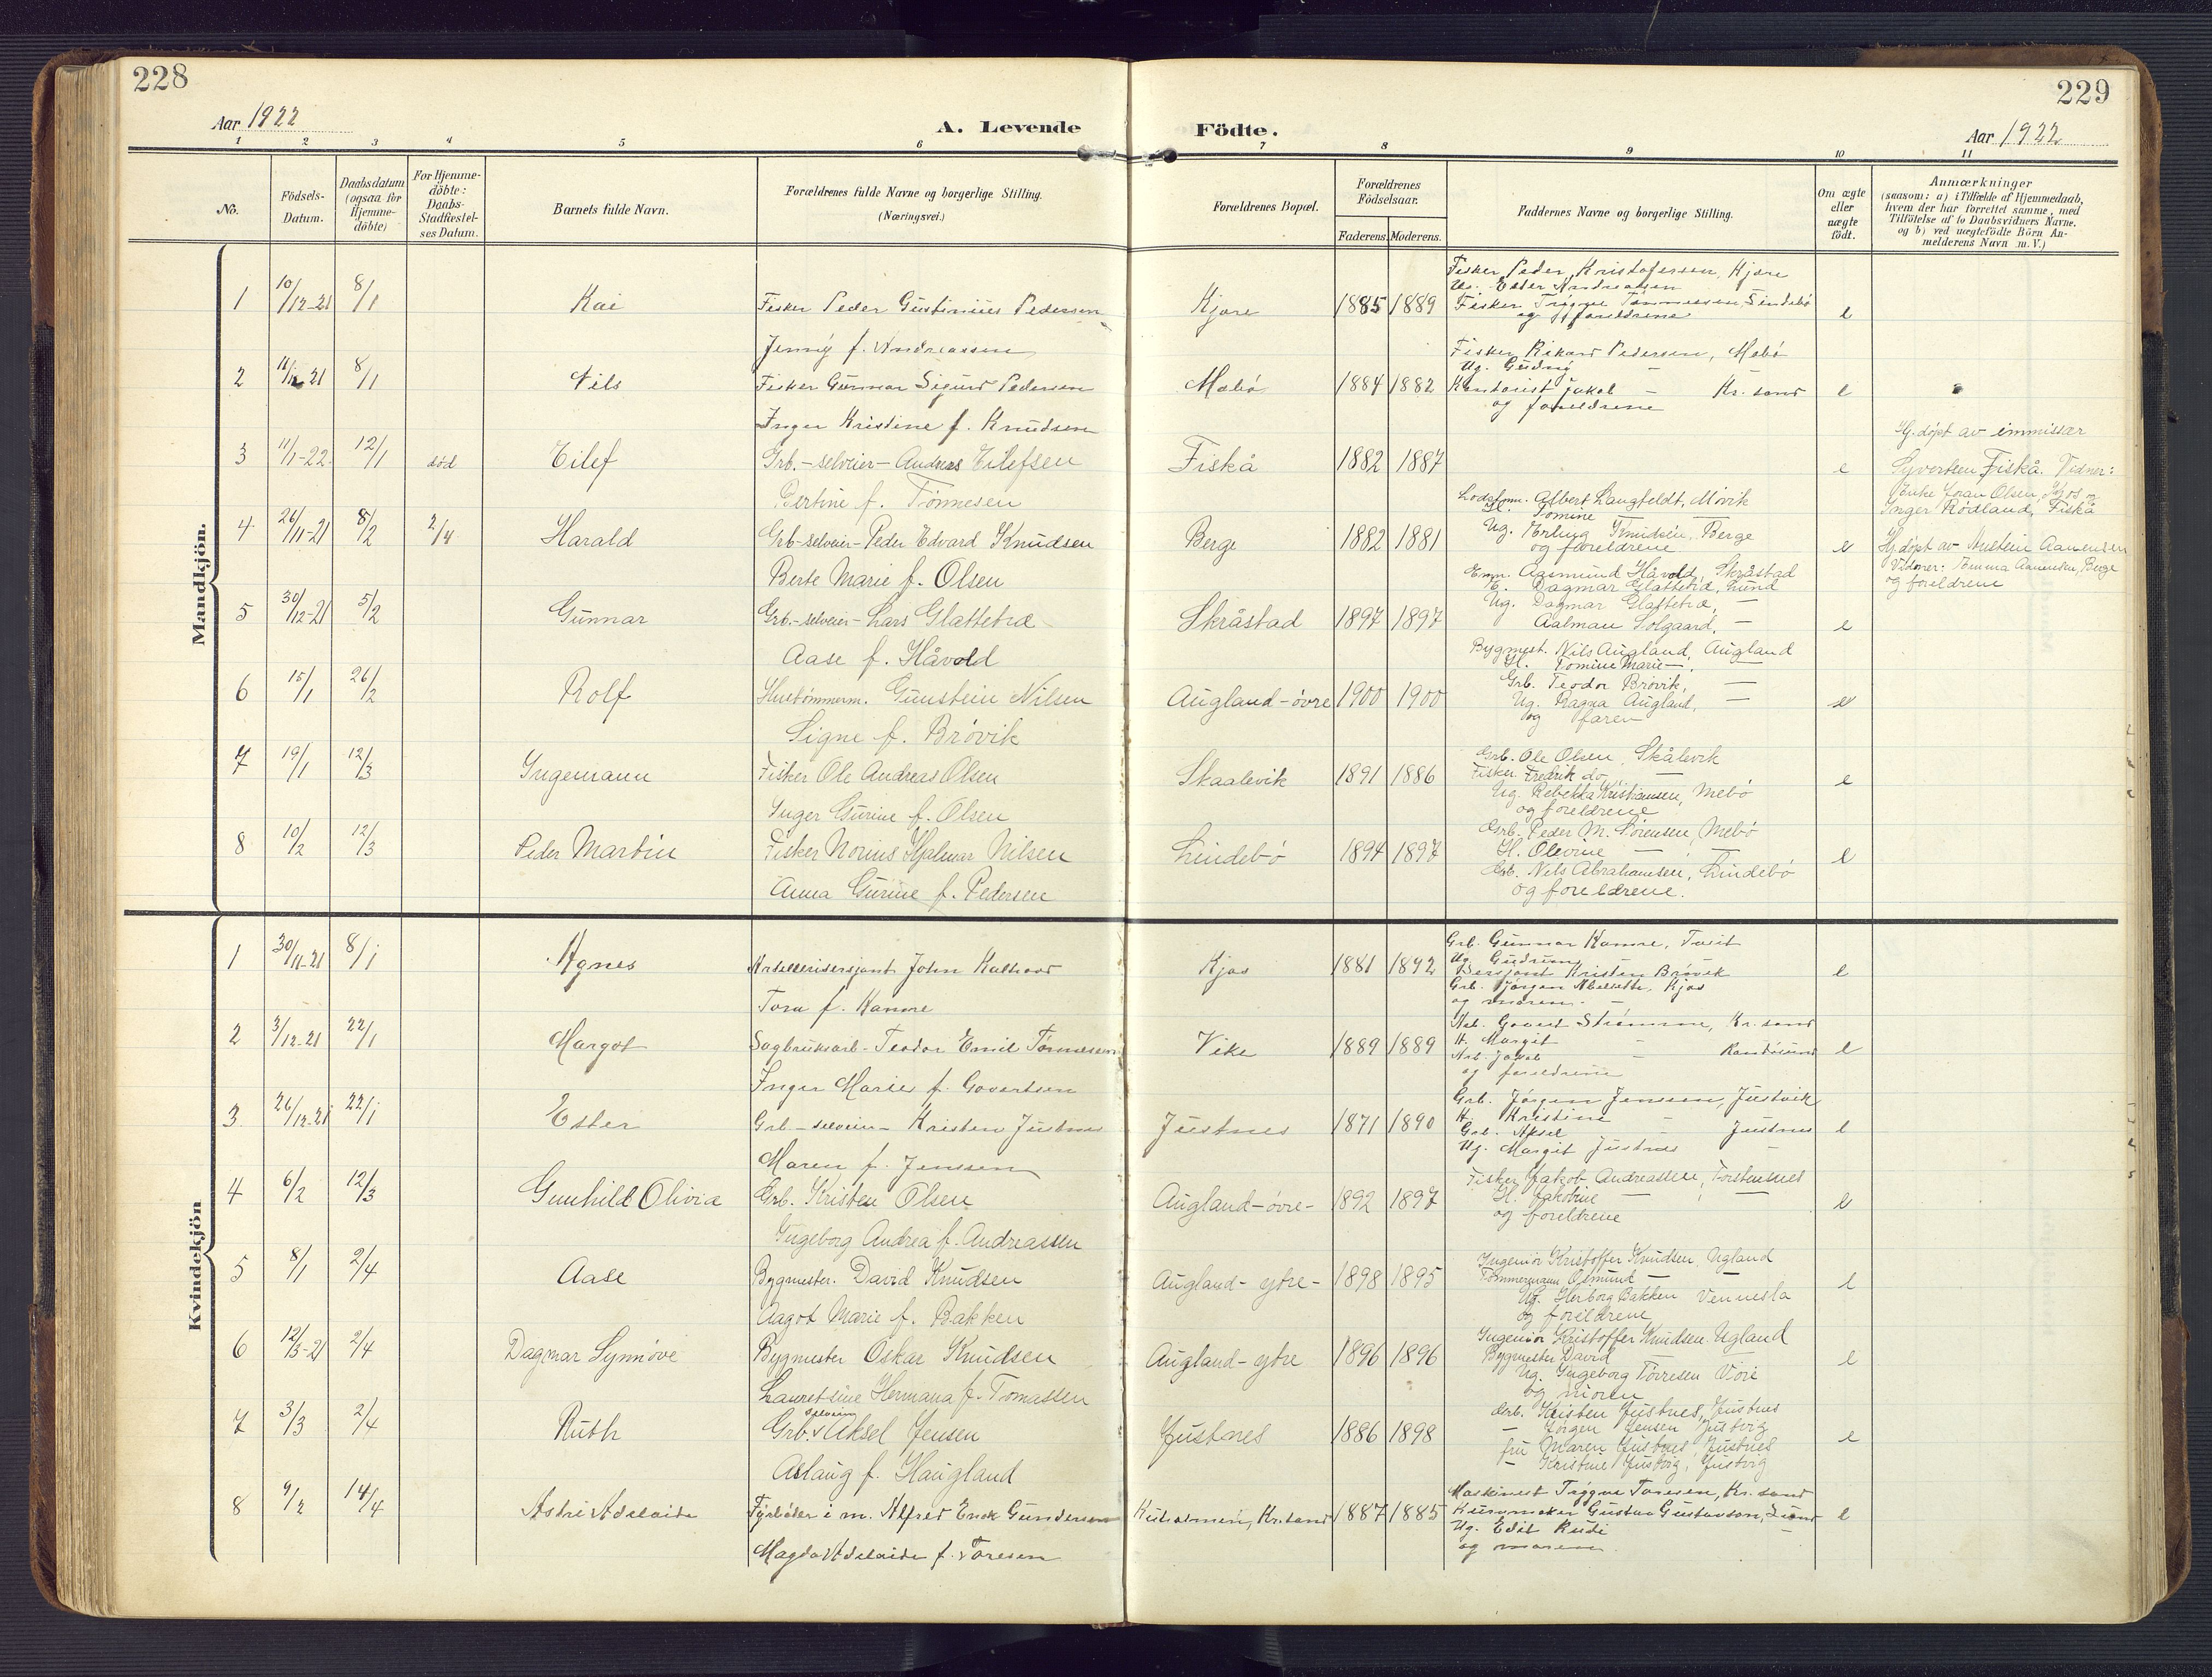 228
229
Aar 1922
A. Levende
Födte.
Aar 1922
1 2 3 4 5 6 7 8 9 10 11
No.
Födsels-
Datum.
Daabsdatum
(ogsaa for
Hjemme-
döbte)
For Hjemme-
döbte:
Daabs-
Stadfæstel-
ses Datum.
Barnets fulde Navn.
Forældrenes fulde Navne og borgerlige Stilling.
(Næringsvei.)
Forældrenes Bopæl.
Forældrenes
Födselsaar.
Faderens. Moderens.
Faddernes Navne og borgerlige Stilling.
Om ægte
eller
uægte
födt.
Anmærkninger
(saasom: a) i Tilfælde af Hjemmedaab,
hvem der har forrettet samme, med
Tilföielse af to Daabsvidners Navne.
og b) ved uægtefödte Börn An-
melderens Navn m. V.)
Mandkjön.
1 10/12-21 8/1 Kai Fisker Peder Gustinius Pedersen Kjøre 1885 1889 e
Jenny f. Andreassen
Fisker Peder Kristofersen, Kjøre
Ug. Ester Andreassen
Fisker Trygve Tønnessen Lindebø
og foreldrene
2 11/12 21 8/1 Nils Fisker Gunnar Sigurd Pedersen Mebø 1884 1882 e
Inger Kristine f. Knudsen
Fisker Rikard Pedersen, Mebø
Ug. Gudny —
Kontorist Jakob — Kr. sand
og foreldrene
3 11/1-22 12/1 død Eilef Grb.-selveier- Andreas Eilefsen Fiskå 1882 1887 e
Bertine f. Tønnesen
Hj.døpt av emissær
Syvertsen Fiskå. Vidner:
Enke Joran Olsen, Kjos og
Inger Rødland, Fiskå
4 26/11-21 5/2 2/4 Harald Grb-selveier- Peder Edvard Knudsen Berge 1882 1881 e
Berte Marie f. Olsen
Lodsfm. Albert Langfeldt, Møvik
H. Tomine —
Ug. Erling Knudsen, Berge
og foreldrene
Hj.døpt av Austein Aanensen
Vidner: Emma Aanensen, Berge
og foreldrene
5 30/12-21 5/2 Gunnar Grb.-selveier- Lars Glattetre Skråstad 1897 1897 e
Aase f. Håvold
Em. Aasmund Håvold, Skråstad
E. Dagmar Glattetre, Lund
Ug. Dagmar Glattetre, —
Aalman Solgaard, —
6 15/1 26/2 Rolf Hustømmerm. Gunstein Nilsen Augland-øvre 1900 1900 e
Signe f. Brøvik
Bygmest. Nils Augland, Augland
H. Tomine Marie —
Grb. Teodor Brøvik, —
Ug. Ragna Augland, —
og faren
7 19/1 12/3 Ingemann Fisker Ole Andreas Olsen Skaalevik 1891 1886 e
Inger Gurine f. Olsen
Grb. Ole Olsen, Skålevik
Fisker Fredrik do —
Ug. Rebekka Kristiansen, Mebø
og foreldrene
8 10/2 12/3 Peder Martin Fisker Norius Hjalmar Nilsen Lindebø 1894 1897 e
Anna Gurine f. Pedersen
Grb. Peder M. Sørensen, Mebø
H. Olevine —
Grb. Nils Abrahamsen, Lindebø
og foreldrene.
Kvindekjön
1 30/11-21 8/1 Agnes Artillerisersjant John Kalhovd Kjos 1881 1892 e
Tora f. Kamre
Grb. Gunnar Kamre, Tveit
Ug. Gudrun —
Sersjant Kristen Brøvik
Grb. Jørgen, Kjos
og moren.
2 3/12-21 22/1 Margot Sagbruksarb- Teodor Emil Tønnesen Vike 1889 1889 e
Inger Marie f. Govertsen
Arb. Govert Strømme, Kr. sand
H. Margit —
Arb. Jakob — Randøsund
og foreldrene
3 26/12-21 22/1 Ester Grb-selveier- Kristen Justnes Justnes 1871 1890 e
Maren f. Jenssen
Grb. Jørgen Jenssen, Justvik
H. Kristine —
Grb. Aksel — Justnes
Ug. Margit Justnes —
4 6/2 12/3 Gunhild Olivia Grb. Kristen Olsen Augland-øvre- 1892 1897 e
Ingeborg Andrea f. Andreassen
Fisker Jakob Andreassen, Torstensnes
H. Jakobine — —
og foreldrene
5 8/1 2/4 Aase Bygmester. David Knudsen Augland-ytre- 1898 1895 e
Aagot Marie f. Bakken
Ingeniør Kristoffer Knudsen, Ugland
Tømmermann Osmund — —
Ug. Herborg Bakken Vennesla
og foreldrene
6 12/3-21 2/4 Dagmar Synnøve Bygmester Oskar Knudsen Augland-ytre 1896 1896 e
Lauretsine Hermana f. Tomassen
Ingeniør Kristoffer Knudsen, Ugland
Bygmester David — —
Ug. Ingeborg Tørresen Voie
og moren
7 3/3 2/4 Ruth Grb. selveier Aksel Jensen Justnes 1886 1898 e
Aslaug f. Haugland
Grb. Kristen Justnes, Justnes
— Jørgen Jensen Justvig
fru Maren Justnes, Justnes
— Kristine Justvig, Justvig
8 9/2 14/4 Astri Adelaide Fyrbøder i m. Alfred Enok Gundersen Kuholmen, Kr.sand 1887 1885 e
Magda Adelaide f. Toresen
Maskinist Trygve Toresen, Kr. sand
Kurvmaker Gustav Gustavson, Lund
Ug. Edit Rudi —
og moren